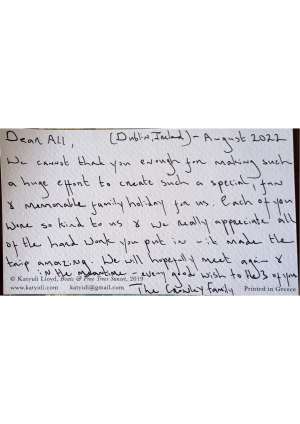 Dear All, (Dublin, Ireland) - August 2022
We cannot that you enough for making such
a huge effort to create such a special, fun
& memorable family holiday for us. Each of you
were so kind to us & we really appreciate all
of the hard work you put in - it made the
trip amazing. We will hopefully meet again &
in the meantime - every good wish to the 3 of you
© Katyuli Lloyd, Boats & Pine Trees Sunset, 2019
www.katyuli.com katyuli@gmail.com Printed in Greece
The Crowley Family